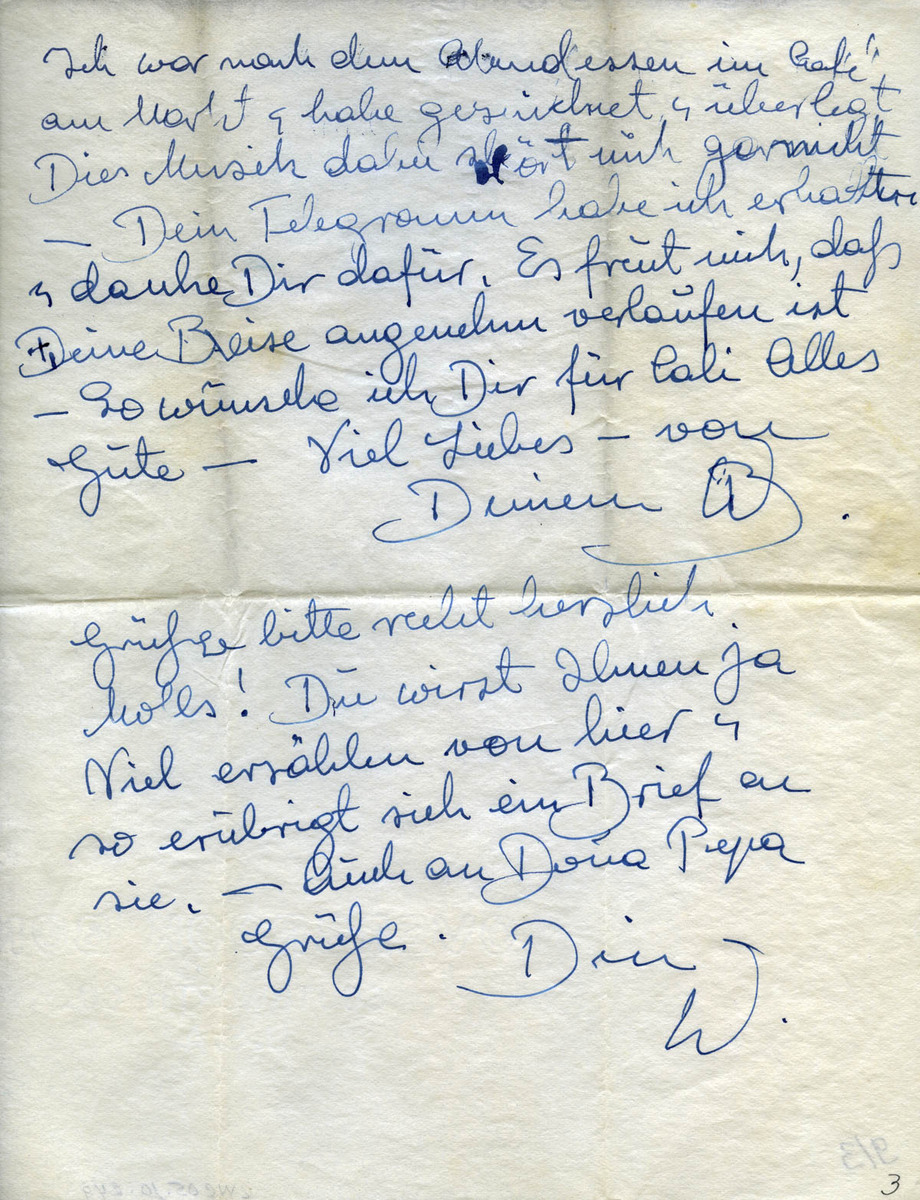 Ich war nach dem Abendessen im Café
am Markt & habe gezeichnet & überlegt
Die Musik dabei stört mich garnicht
— Dein Telegramm habe ich erhalten
& danke Dir dafür. Es freut mich, daß
Deine Reise angenehm verlaufen ist
— So wünsche ich Dir für Cali Alles
Gute — Viel Liebes — von
Deinem W.
Grüße bitte recht herzlich
! Du wirst Ihnen ja
Viel erzählen von hier &
so erübrigt sich ein Brief an
sie. — Auch an Doña Pepa
Grüße. Dein
W.
9/3
3